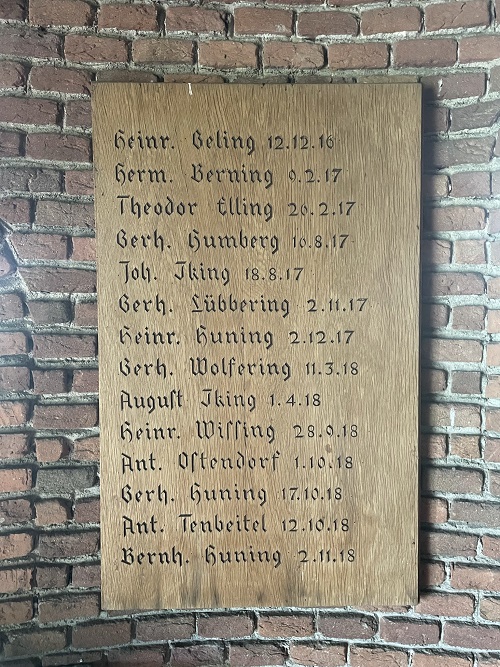 Heinr. Beling 12.12.16
Herm. Berning 9.2.17
Theodor Elling 26.2.17
Gerh. Humberg 16.8.17
Joh. Iking 18.8.17
Gerh. Lübbering 2.11.17
Heinr. Huning 2.12.17
Gerh. Wolfering 11.3.18
Auguſt Iking 1.4.18
Heinr. Wiſſing 28.9.18
Ant. Oſtendorf 1.10.18
Gerh. Huning 17.10.18
Ant. Tenbeitel 12.10.18
Bernh. Huning 2.11.18